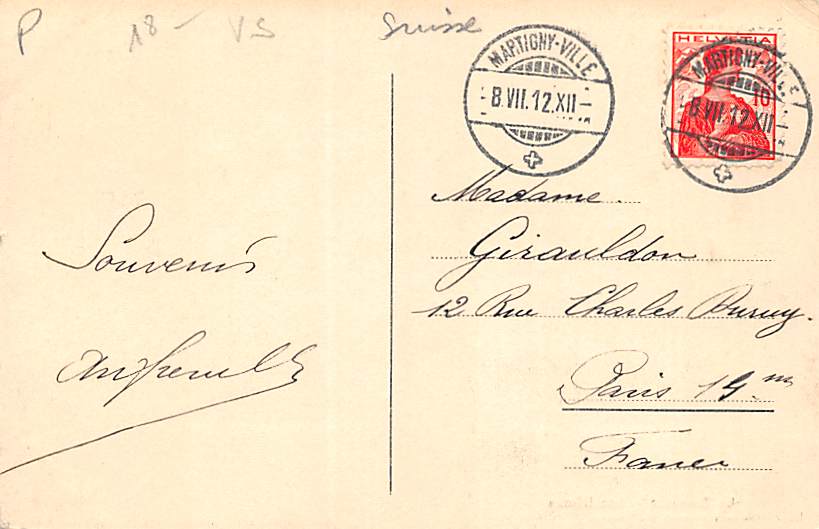 P 18- VS Suisse
MARTIGNY-VILLE
-8.VII.12.XII-
HELVETIA
10
MARTIGNY-VILLE
-8.VII.12.XII-
Madame
Girauldon
12 Rue Charles Duruy.
Paris 19me
France
Souvenirs